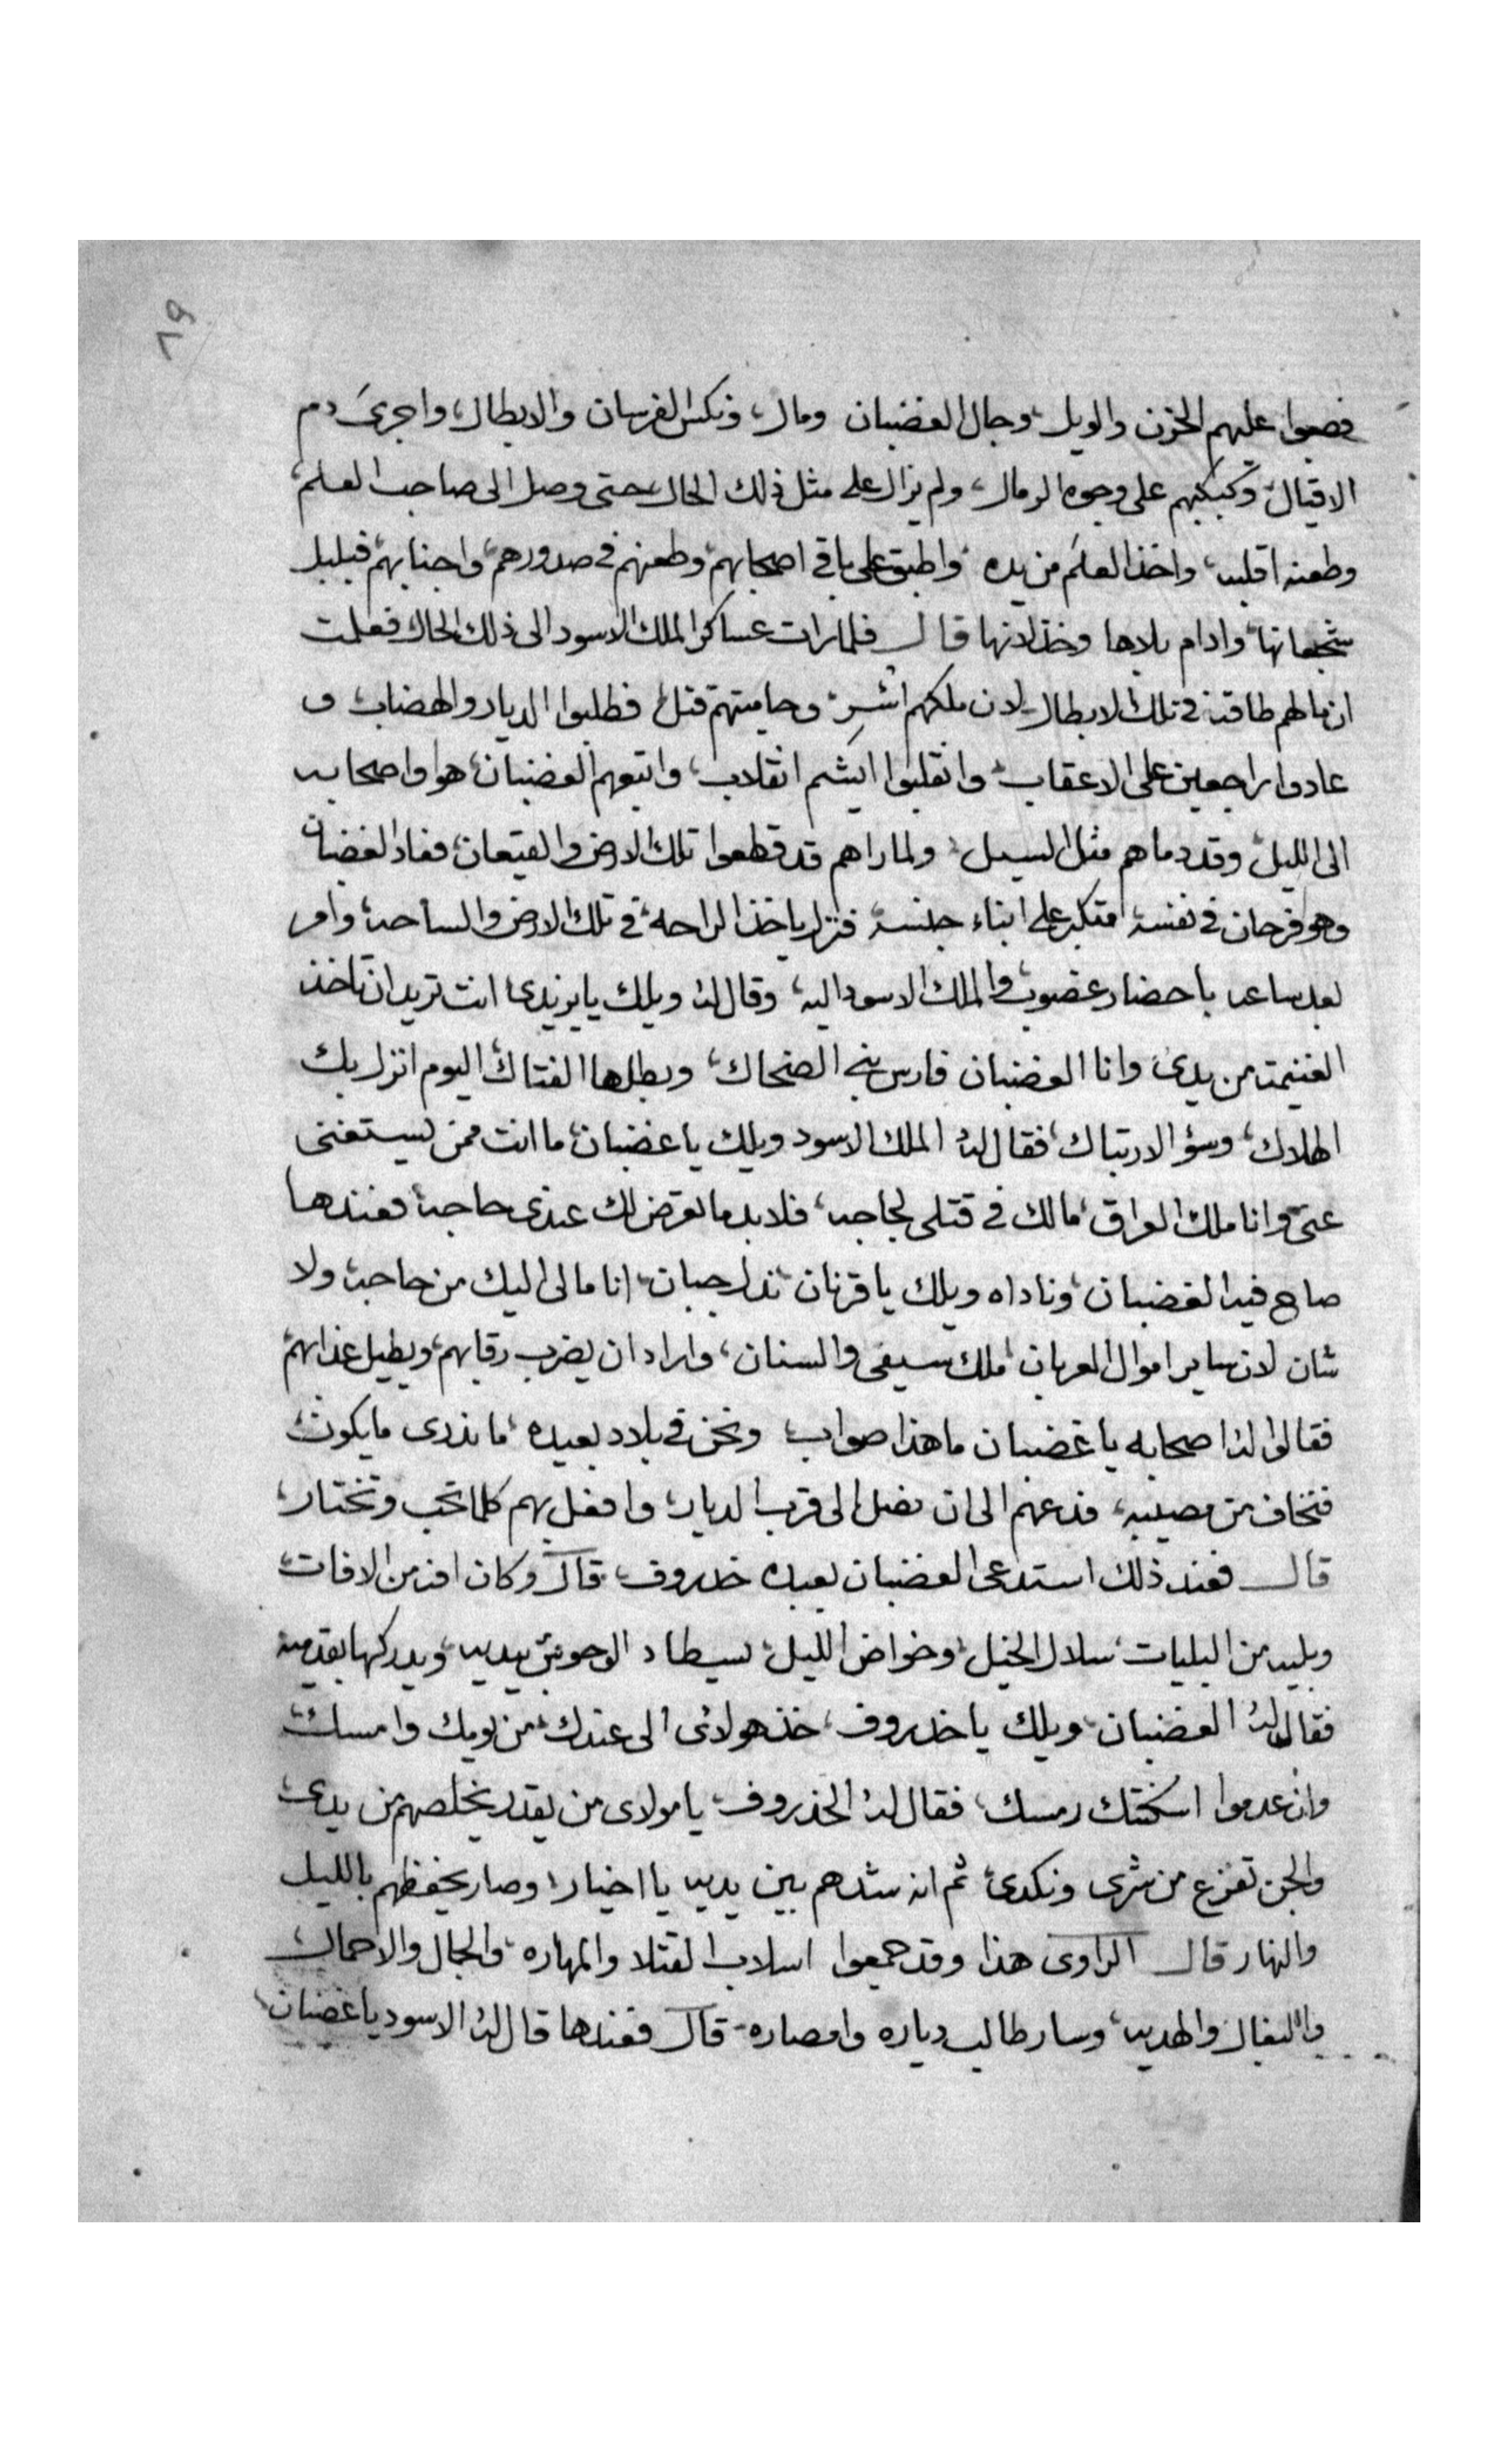 ٦٩
فصبوا عليهم الحزن والويل، وجال الغضبان ومال، ونكس الفرسان والابطال، واجرى دم
الاقيال، وكبكبهم على وجوه الرمال، ولم يزال على مثل ذلك الحال حتى وصل الى صاحب العلم،
وطعنه اقلبه، واخذ العلم من يده، واطبق على باقي اصحابهم، وطعنهم في صدورهم، واجنابهم، فبلبل
شجعانها، وادام بلاها وخذلانها قال فلما رات عساكر الملك الاسود الى ذلك الحال فعلمت
ان مالهم طاقة في تلك الابطال لان ملكهم اُسِر، وحاميتهم قتل، فطلبوا الديار والهضاب، و
عادوا راجعين على الاعقاب، وانقلبوا ايشم انقلاب، واتبعهم الغضبان، هو واصحابه
الى الليل، وقد دماهم مثل السيل، ولما راهم قد قطعوا تلك الارض والقيعان، فعاد الغضبان
وهو فرحان في نفسه، متكبر على ابناء جنسه، فنزل ياخذ الراحه، في تلك الارض والساحه، وامر
بعد ساعه باحضار عضوب والملك الاسود اليه، وقال له ويلك يا انت تريد ان تاخذ
الغنيمه من يدى، وانا الغضبان فارس بني الضحاك، وبطلها الفتاك، اليوم انزل بك
الهلاك، وسؤ الارتباك، فقال له الملك الاسود ويلك يا غضبان، ما انت ممن يستغنى
عنى، وانا ملك العراق، مالك في قتلى لجاجه، فلا بد ما تعرض لك عندى حاجه، فعندها
صاح فيه الغضبان، وناداه ويلك يا قرنان، ندل جبان، انا مالى اليك من حاجه، ولا
شان لان ساير اموال العربان، ملك سيفى والسنان، واراد ان يضرب رقابهم، ويطيل عذابهم،
فقالوا له اصحابه يا غضبان ما هذا صواب، ونحن في بلاد بعيده، ما ندرى ما يكون،
فنخاف من مصيبه، فدعهم الى ان نصل الى قرب الديار، وافعل بهم كلما تحب وتختار،
قال فعند ذلك استدعى الغضبان بعبده خدروف، قال وكان افه من الافات،
وبليه من البليات، سلال الخيل، وخواض الليل، يسيطاد الوحوش بيديه، ويدركها بقدميه
فقال له الغضبان، ويلك يا خدروف، خذ هولائى الى عندك، من يومك وامسك،
وان عدموا اسكنتك رمسك، فقال له الخذروف، يا مولاى من يقدر يخلصهم من يدى،
والجن تفزع من شرى ونكدى، ثم انه شدهم بين يديه يا اخيار، وصار يحفظهم بالليل
والنهار قال الراوى هذا وقد جمعوا اسلاب القتلا والمهاره، والجمال والاحمال،
والبغال والهديه، وسار طالب دياره وامصاره، قال فعندها قال له الاسود يا غضبان،